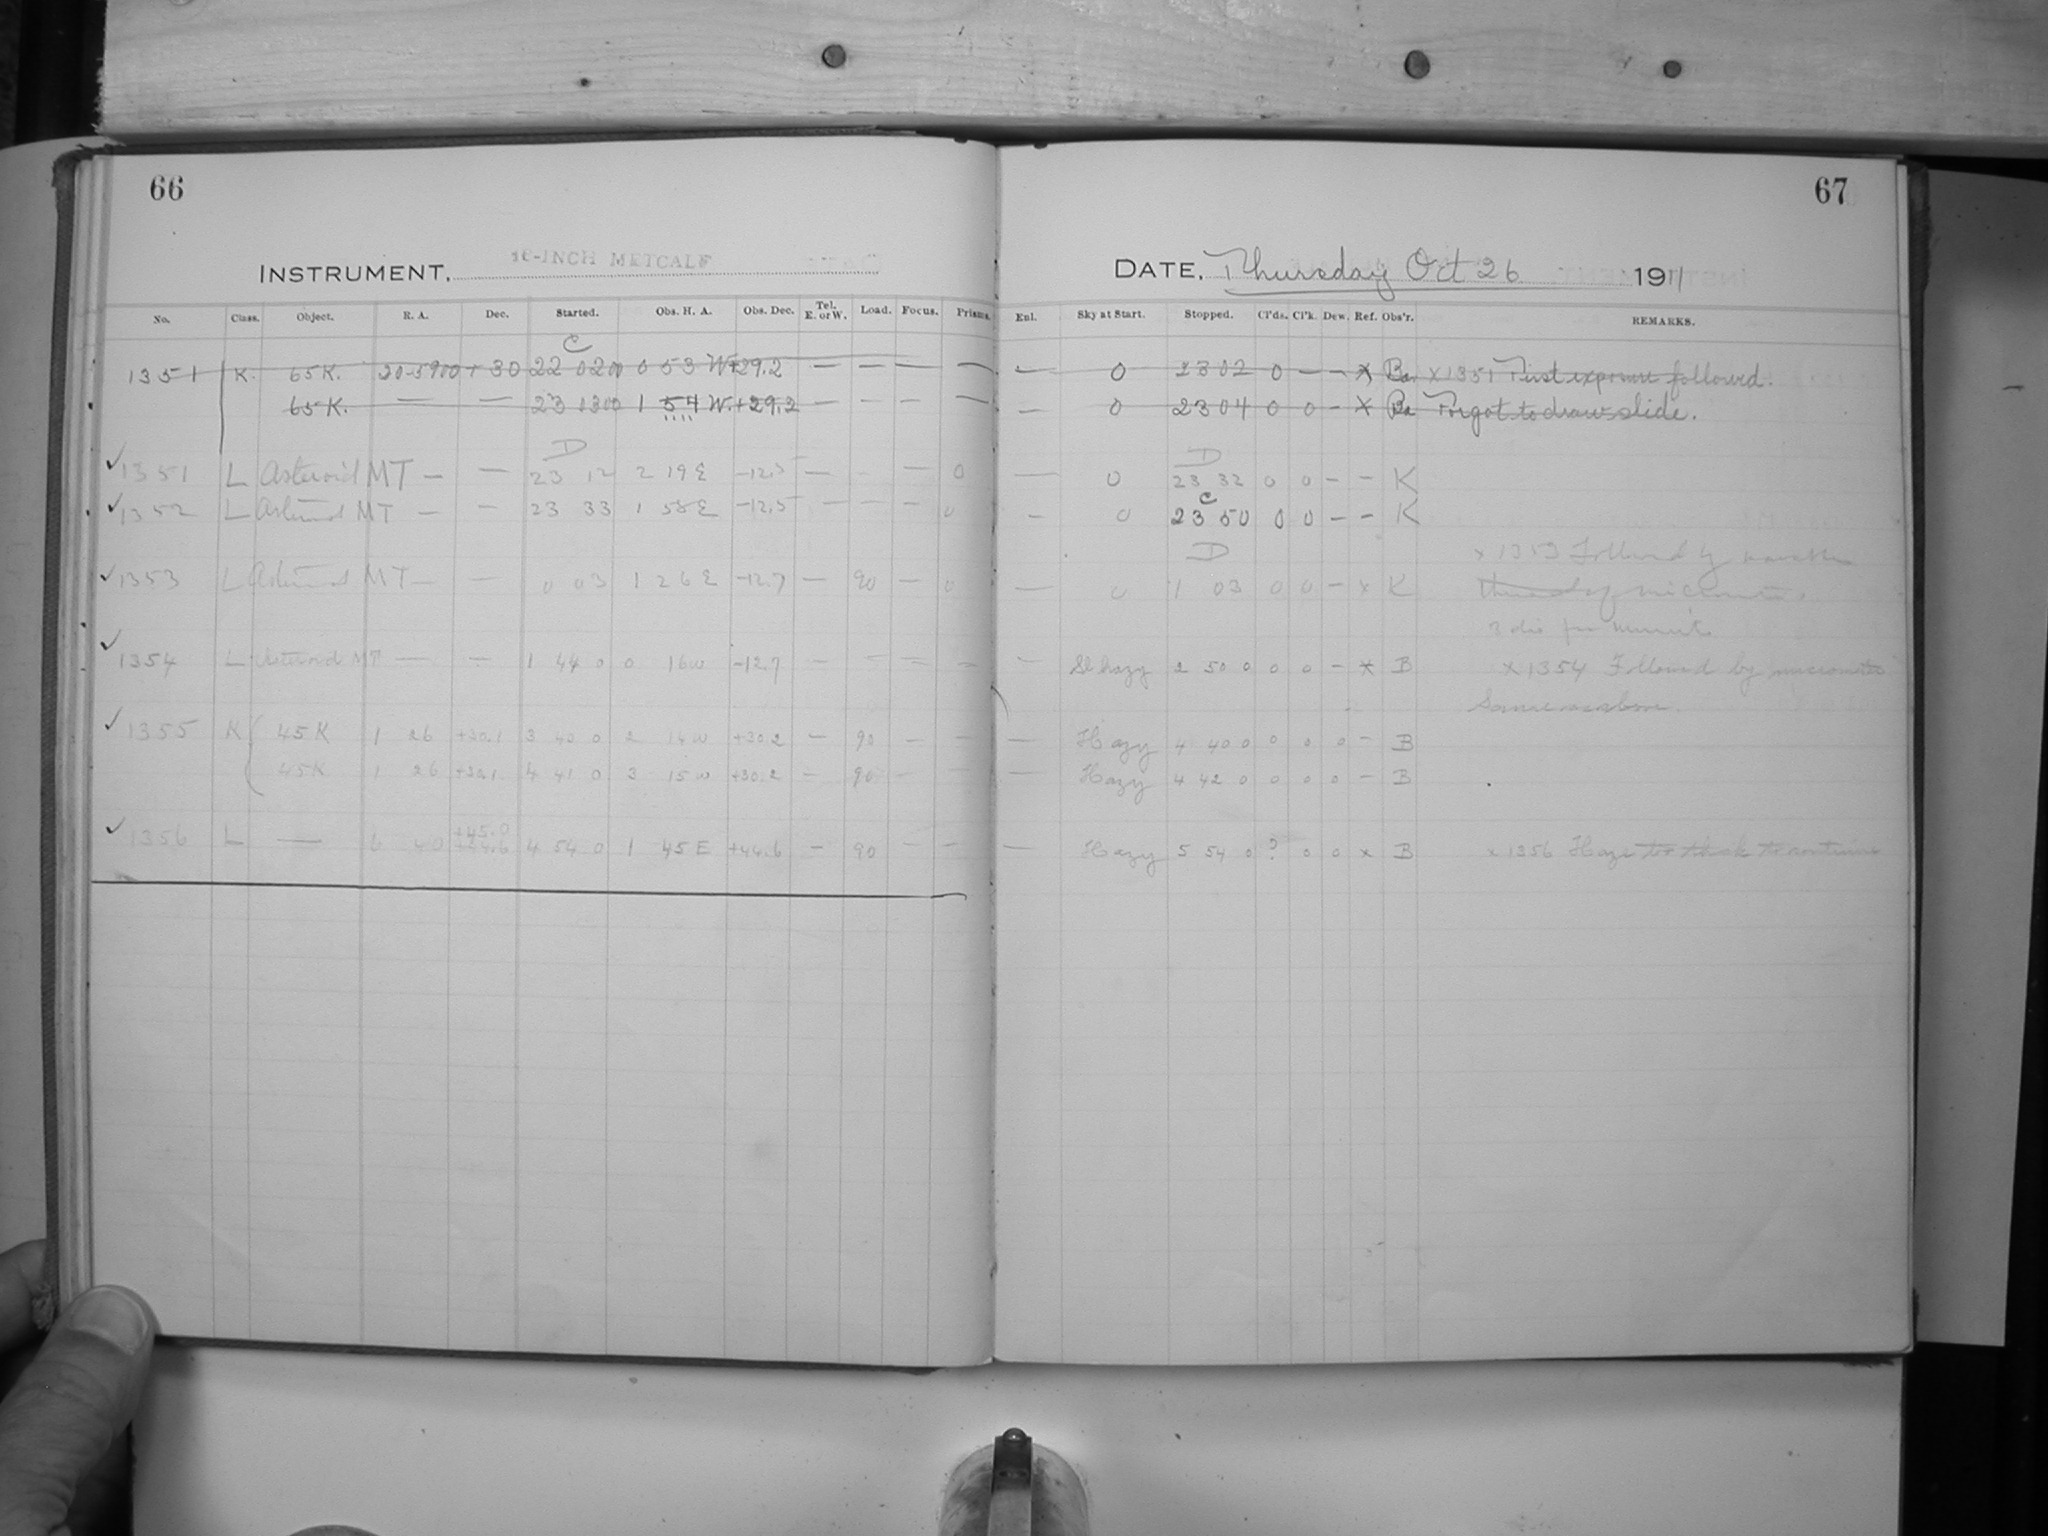 66
67
INSTRUMENT, 16-INCH METCALF
DATE, Thursday Oct 26 1911
No. Class. Object. R. A. Dec. Started. Obs. H. A. Obs. Dec. Tel. E. or W. Load. Focus. Prisms. Enl. Sky at Start. Stopped. Cl'ds. Cl'k. Dew. Ref. Obs'r. REMARKS.
C
1351 K. 65K. 20-5900 + 30 22 0200 0 53 W +29.2 — — — — — 0 2302 0 — — X Ba x1351 First exposure followed.
65K. — — 23 0300 1 54 W. +29.2 — — — — — 0 2304 0 0 — X Ba Forgot to draw slide.
D D
✓1351 L Asteroid MT — — 23 12 2 19 E -12.5 — - — 0 — 0 23 32 0 0 — — K
C
✓1352 L Asteroid MT — — 23 33 1 58 E -12.5 — — — 0 — 0 23 50 0 0 — — K
D
x 1353 Followed by
✓1353 L Asteroid MT — — 0 03 1 26 E -12.7 — 90 — 0 — 0 1 03 0 0 — x K
3 div
✓1354 L Asteroid MT — — 1 44 0 0 16 W -12.7 — — — — — Sl hazy 2 50 0 0 0 — x B x1354 Followed by micrometer
Same as above.
✓1355 K 45K 1 26 +30.1 3 40 0 2 14 W +30.2 — 90 — — — Hazy 4 40 0 0 0 0 — B
45K 1 26 +30.1 4 41 0 3 15 W +30.2 — 90 — — — Hazy 4 42 0 0 0 0 — B
✓1356 L — 6 40 +45.0 +44.6 4 54 0 1 45 E +44.6 — 90 — — — Hazy 5 54 0 ? 0 0 x B x 1356 Haze too thick to continue